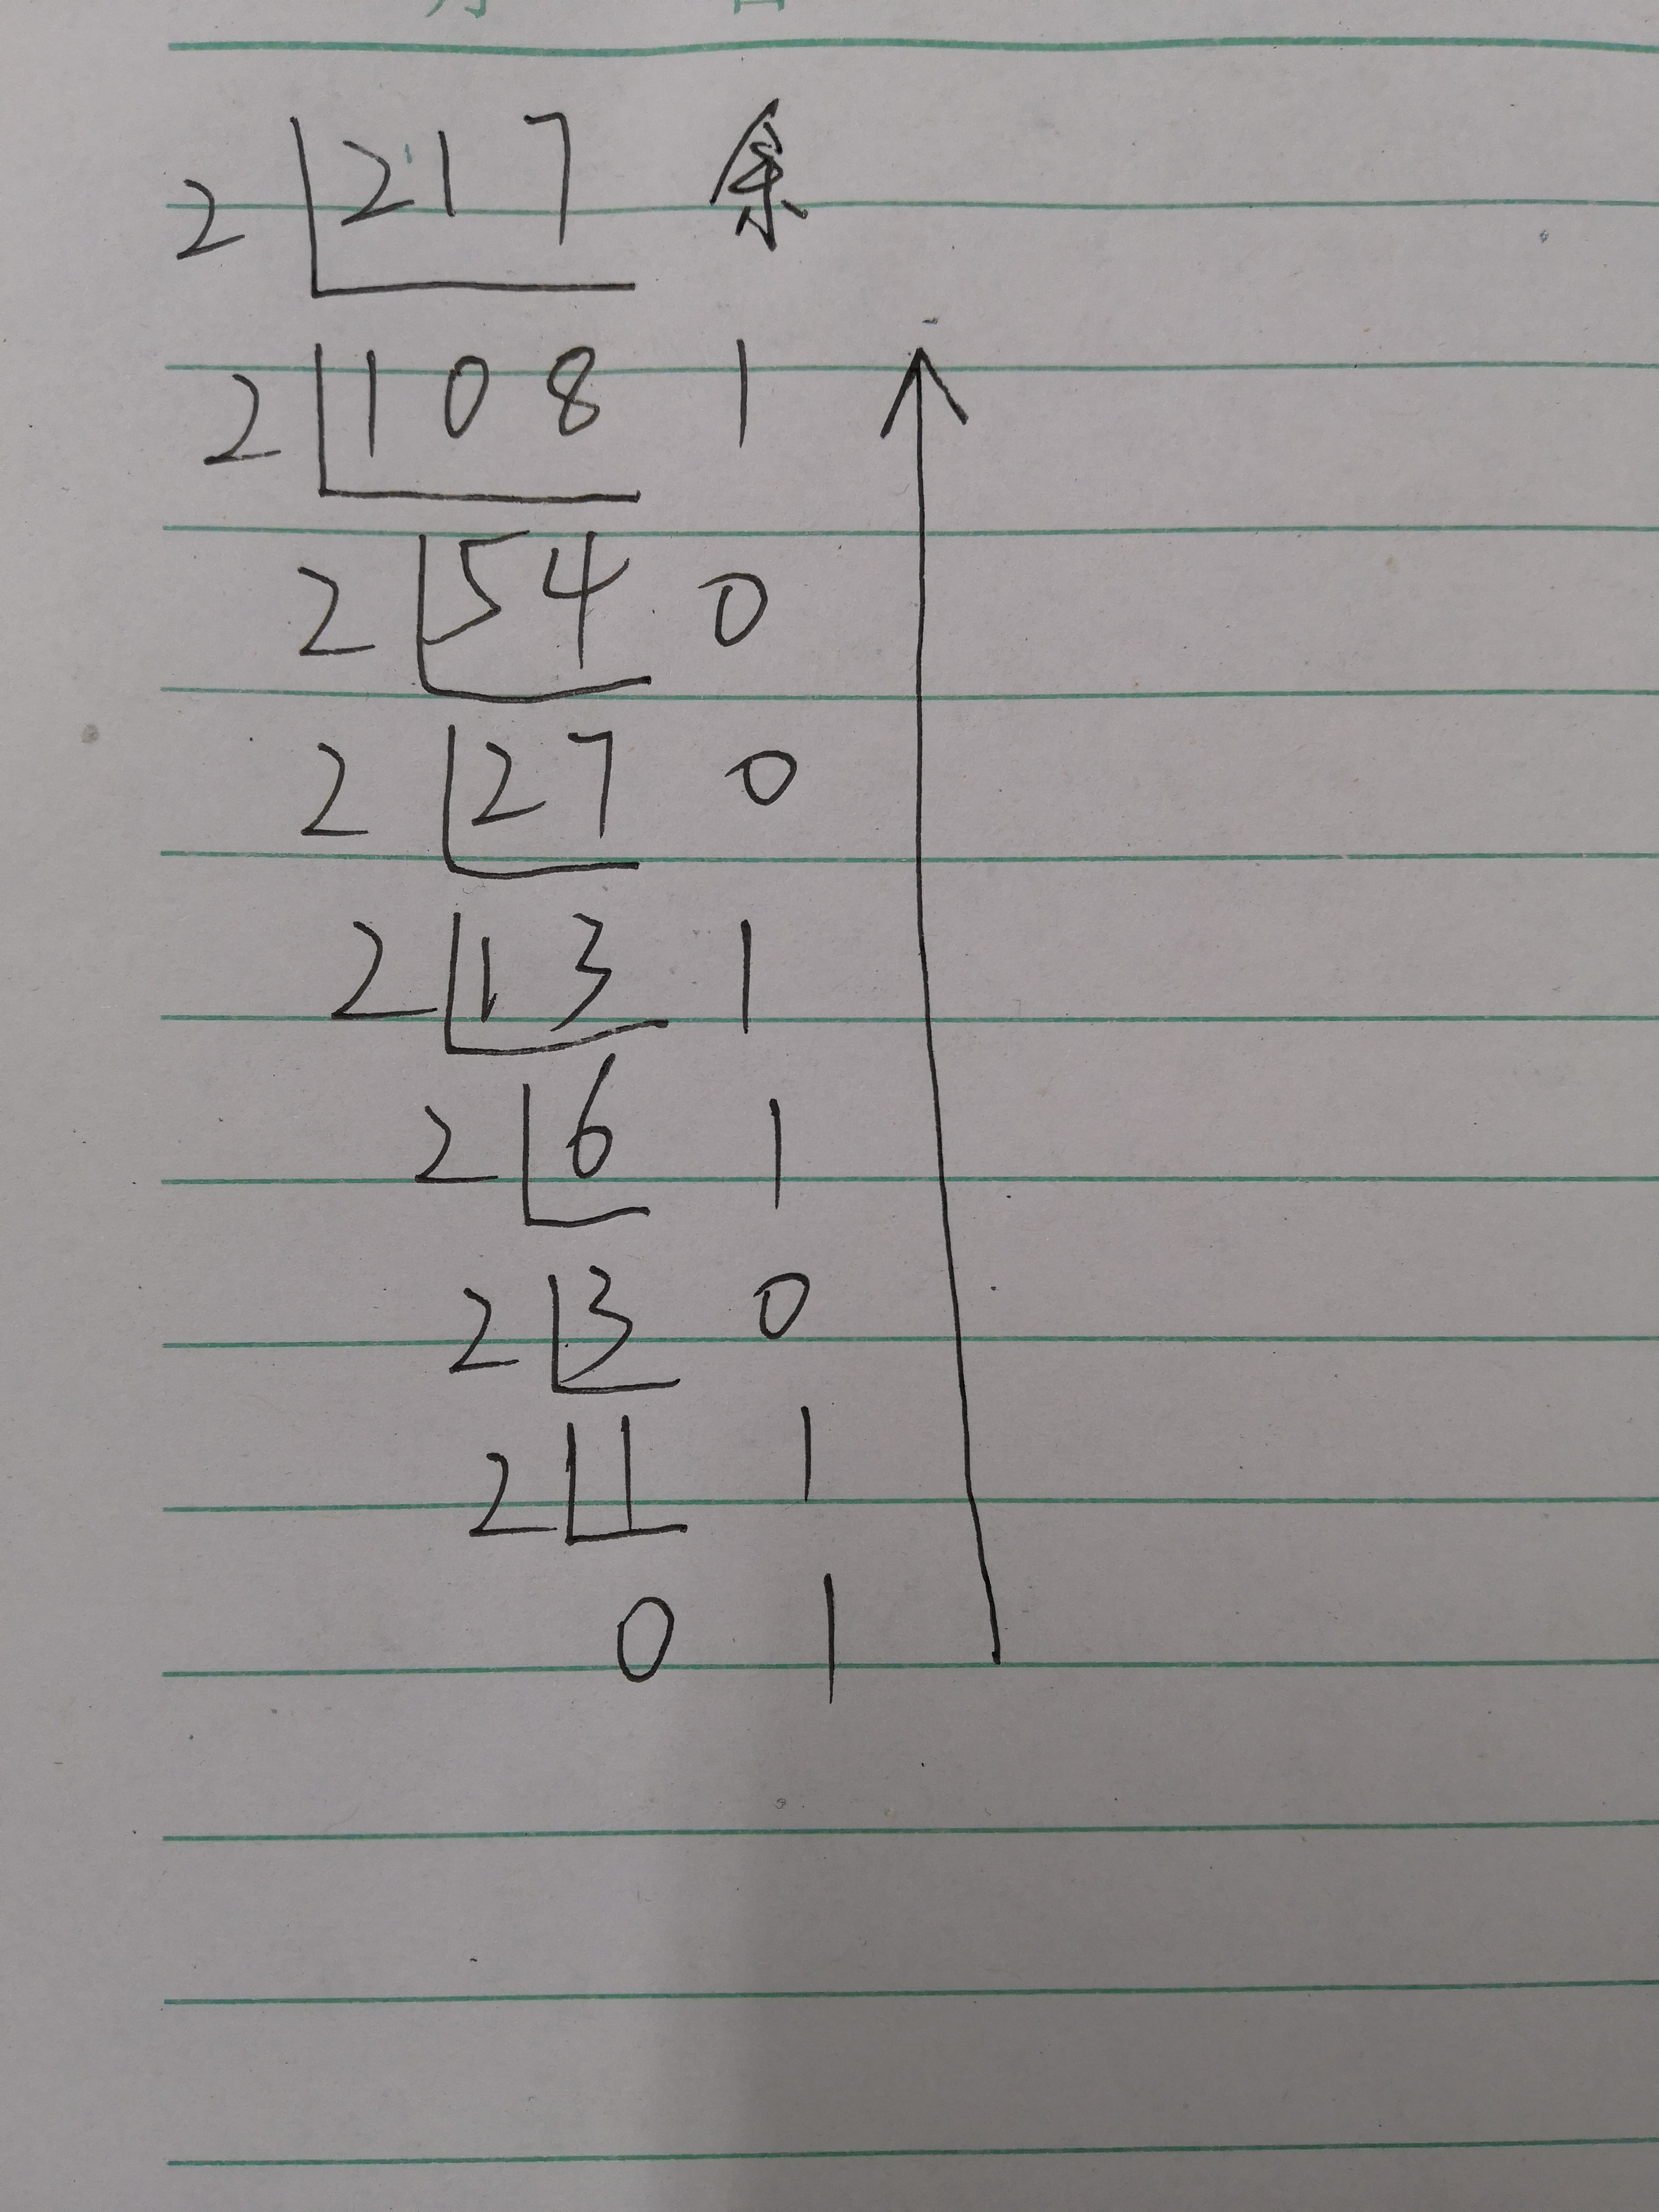 2 217 余
2 108 1
2 54 0
2 27 0
2 13 1
2 6 1
2 3 0
2 1 1
0 1